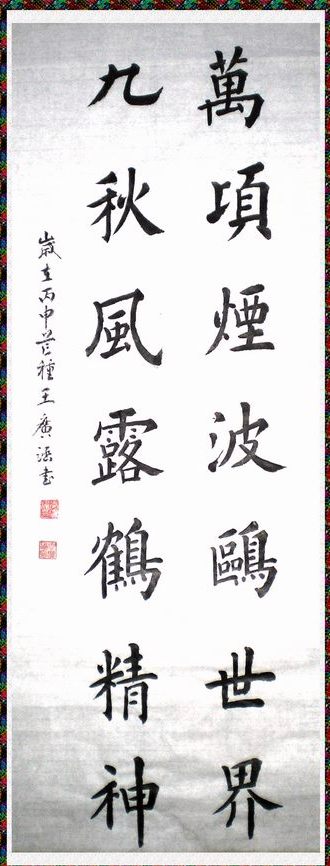 萬頃煙波鷗世界
九秋風露鶴精神
歲在丙申芒種王廣語書